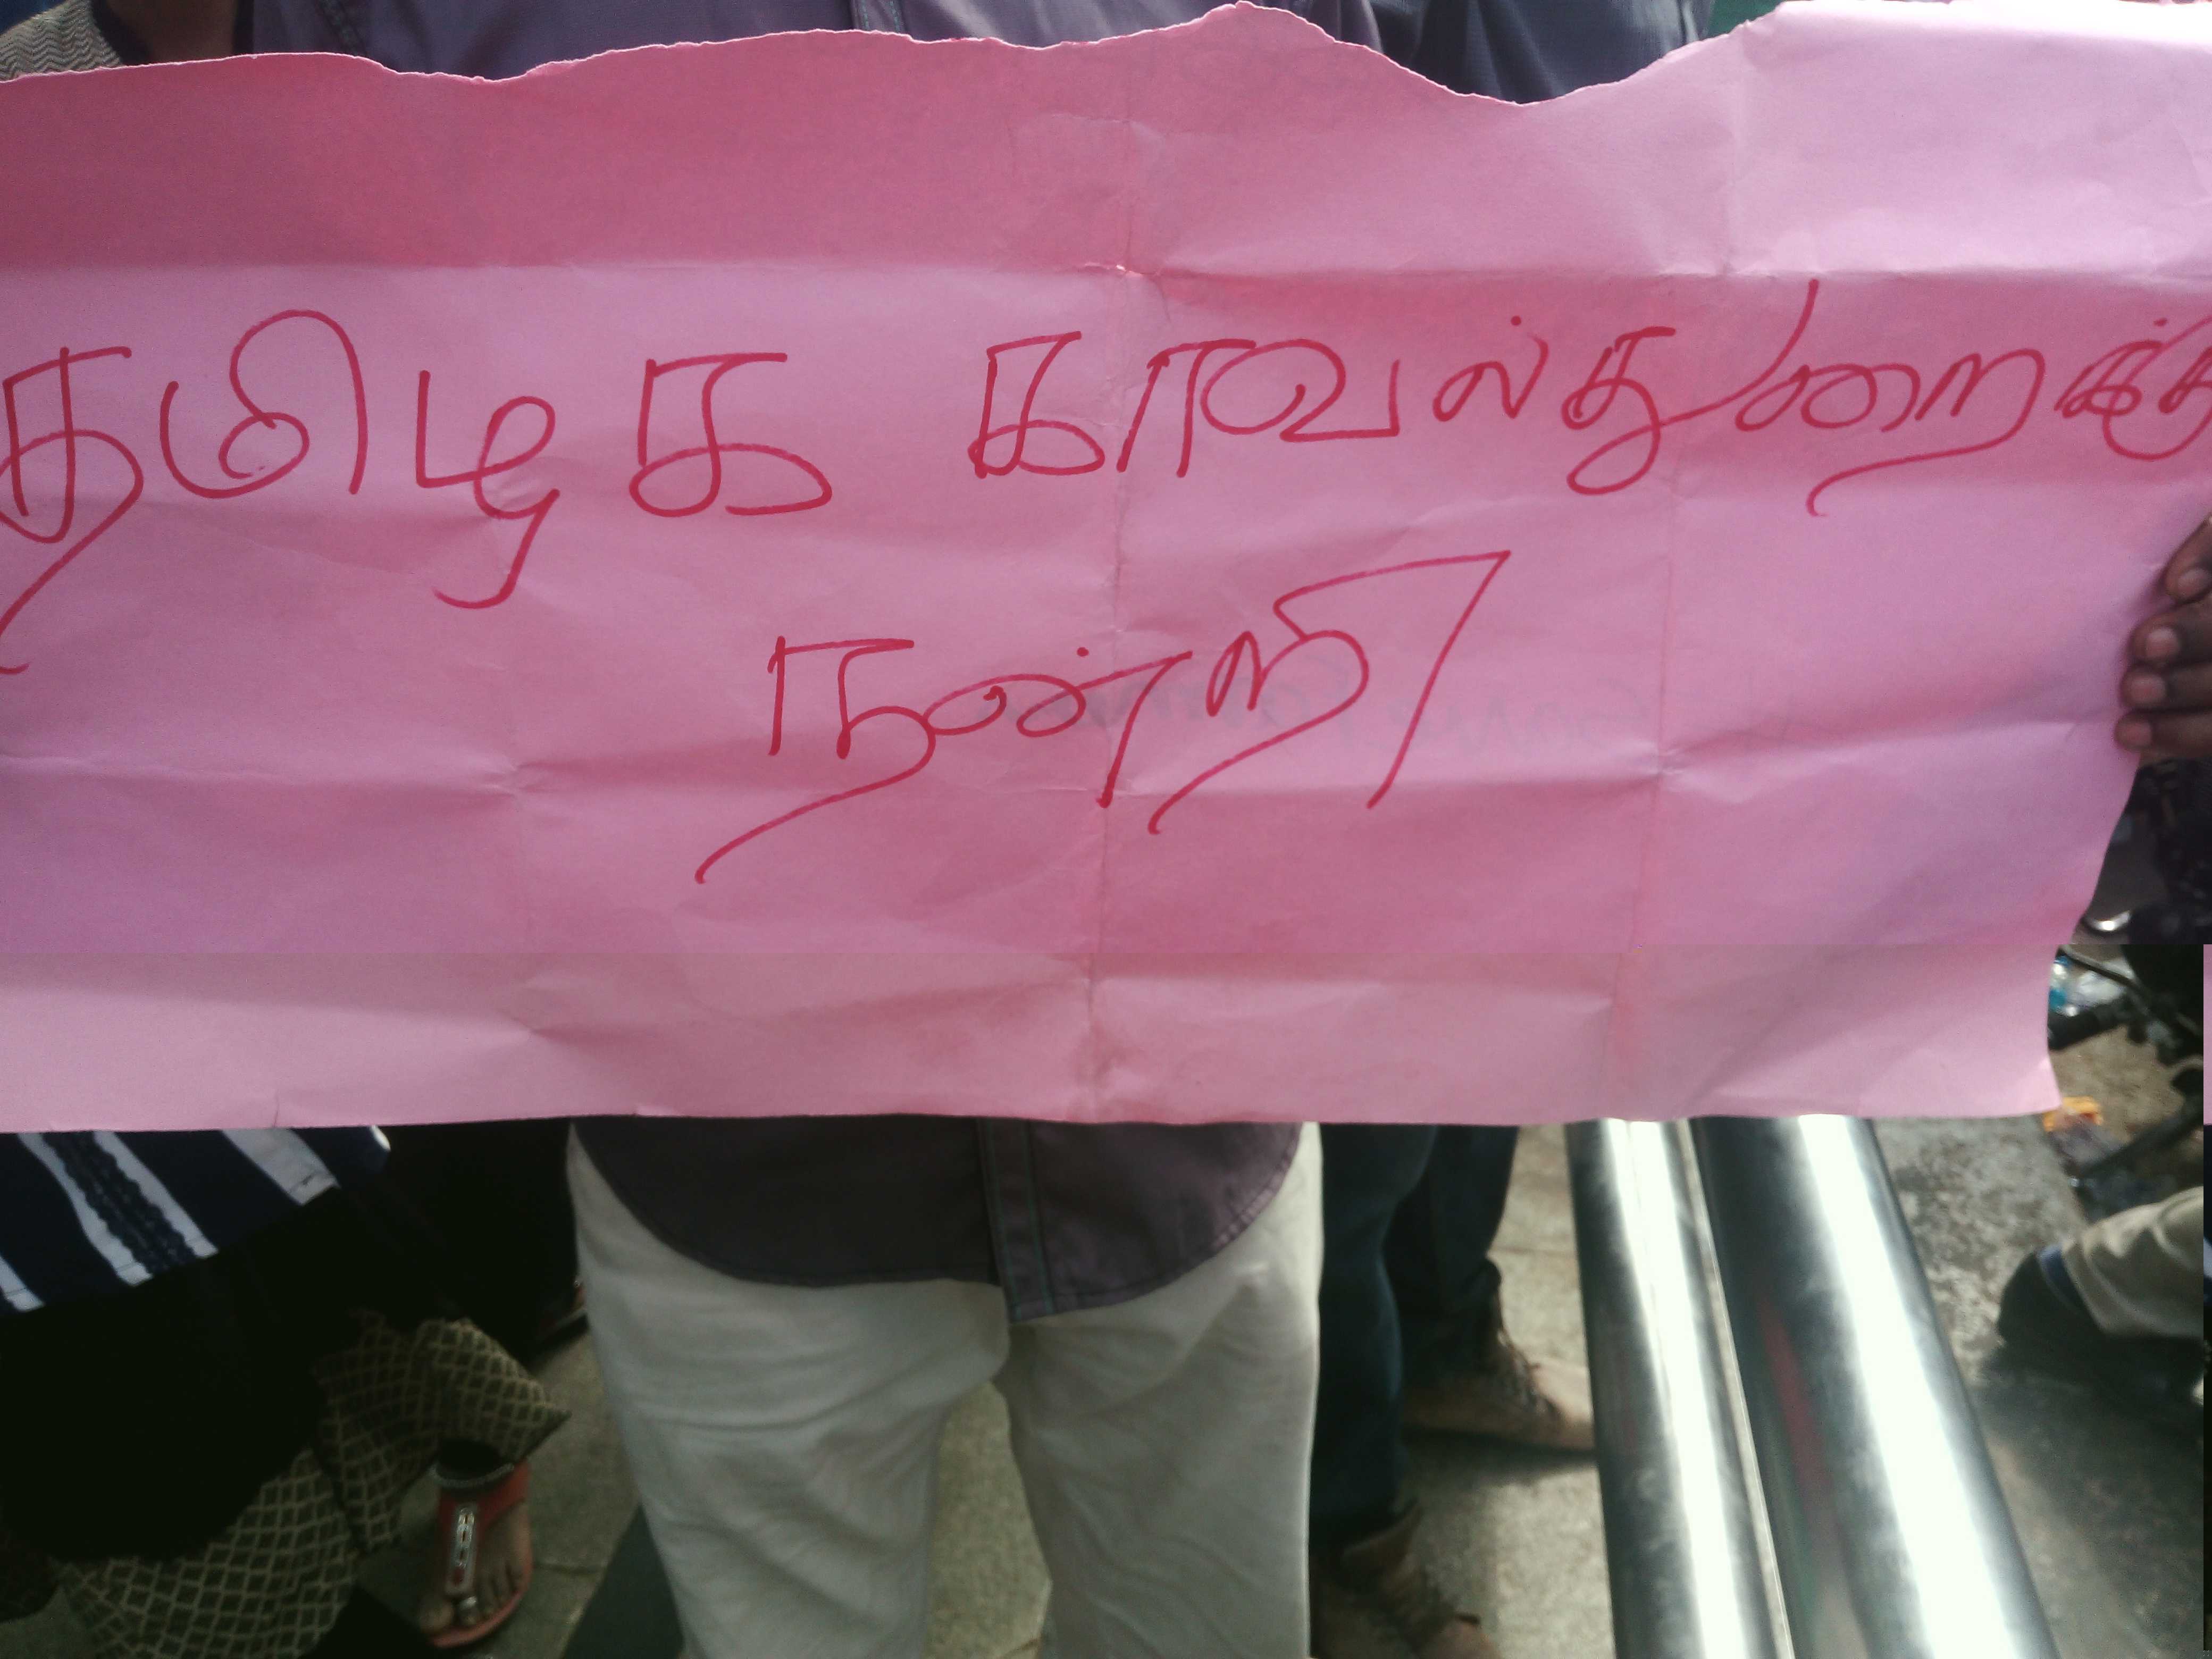 தமிழக காவல்துறைக்கு
நன்றி